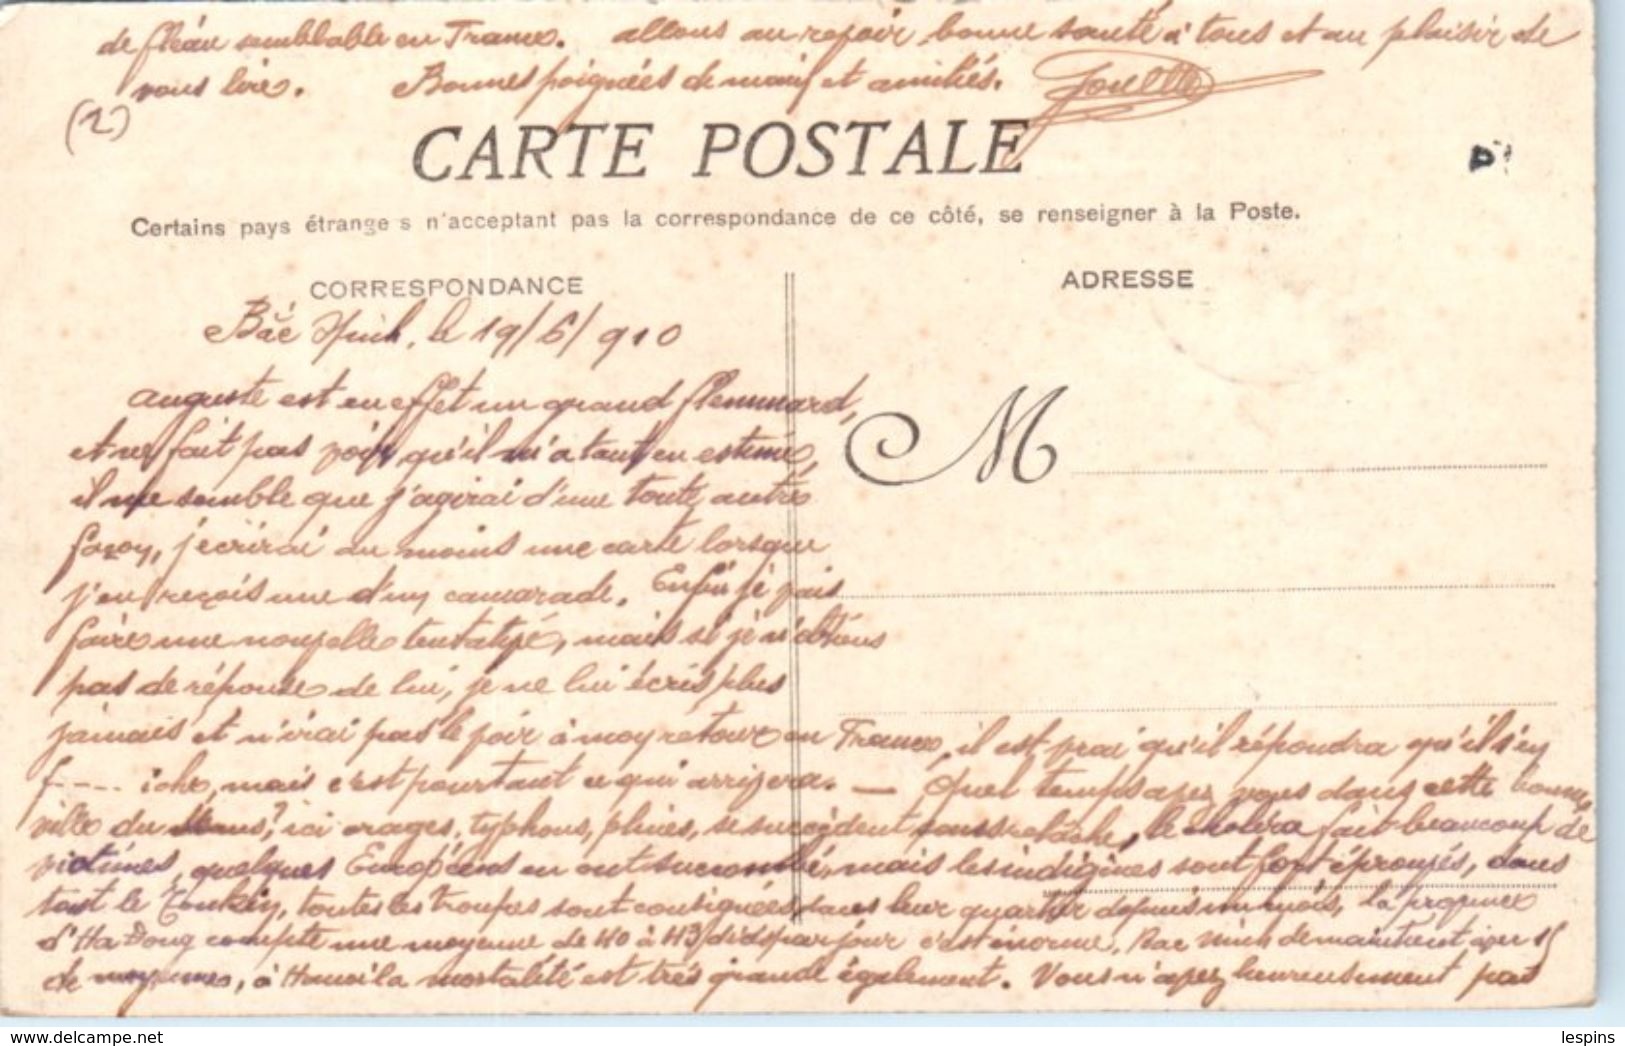 de fléau semblable en France. allons au revoir bonne santé à tous et au plaisir de
vous lire. Bonnes poignées de main et amitiés. Jouette
(2)
CARTE POSTALE
Certains pays étrange s n'acceptant pas la correspondance de ce côté, se renseigner à la Poste.
CORRESPONDANCE
ADRESSE
Bắc Ninh, le 19/6/910
M
Auguste est en effet un grand flemmard,
et ne fait pas voir qu'il m'a tant en estime,
il me semble que j'agirai d'une toute autre
façon, j'écrirai au moins une carte lorsque
j'en reçois une d'un camarade. Enfin je vais
faire une nouvelle tentative, mais si je n'obtiens
pas de réponse de lui, je ne lui écris plus
jamais et n'irai pas le voir à mon retour en France, il est vrai qu'il répondra qu'il s'en
f---- iche, mais c'est pourtant ce qui arrivera. — Quel temps avez vous dans cette bonne
ville du Mans? ici orages, typhons, pluies, se succèdent sans relâche, le choléra fait beaucoup de
victimes, quelques Européens en ont succombé, mais les indigènes sont fort éprouvés, dans
tout le Tonkin, toutes les troupes sont consignées dans leur quartier depuis un mois, la province
d'Ha Dong compte une moyenne de 40 à 43 décès par jour c'est énorme, Bac Ninh de maintient avec 15
de moyenne, à Hanoi la mortalité est très grande également. Vous n'avez heureusement pas
lespins